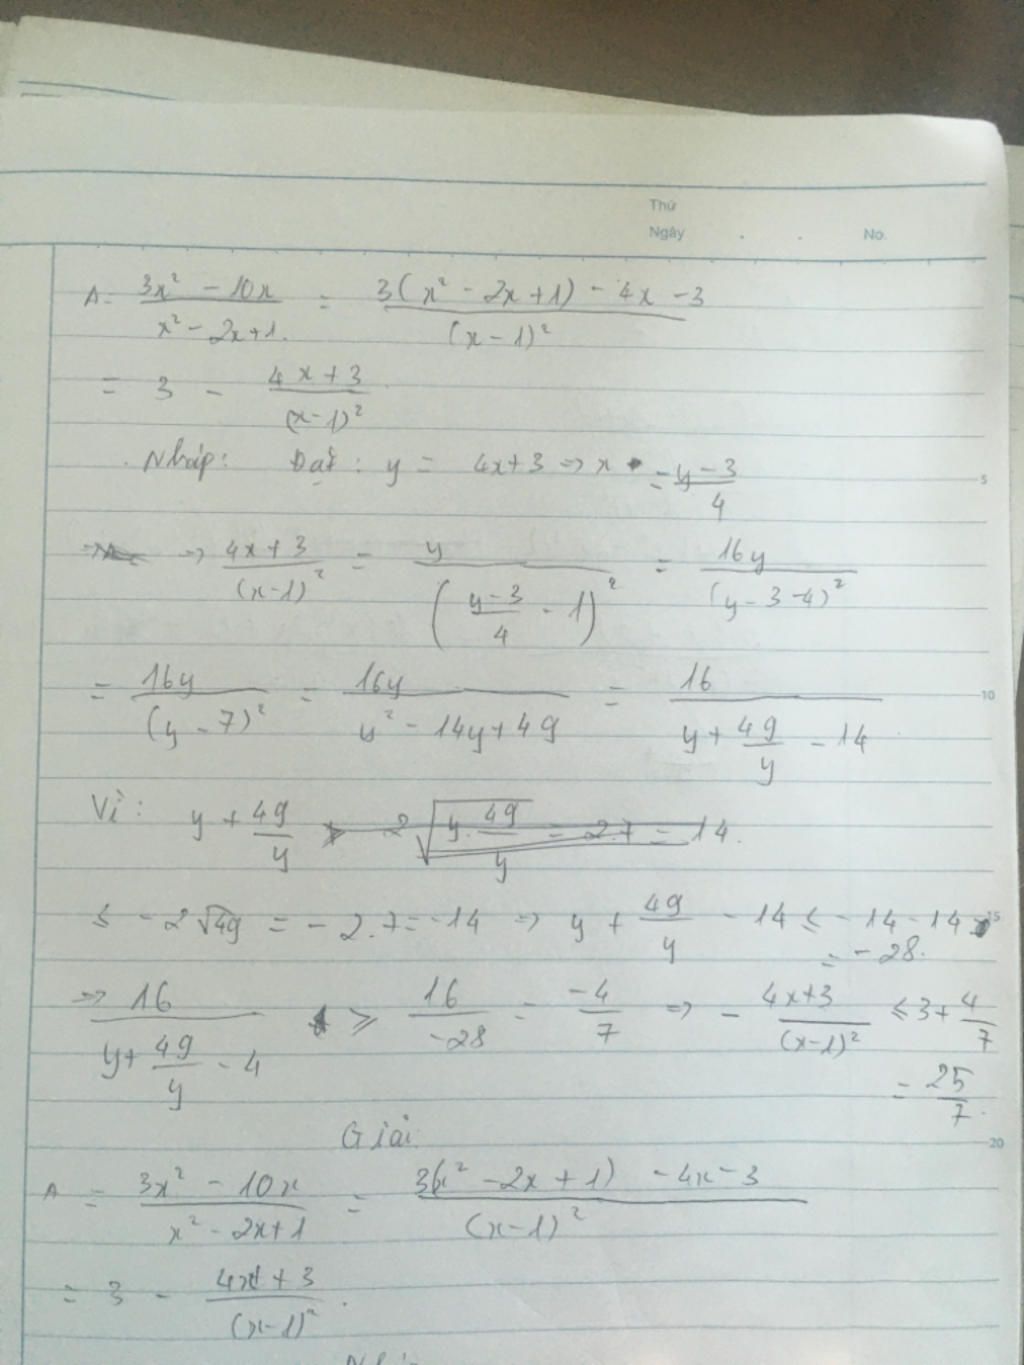 Thứ
Ngày . . No.
A = \frac{3x² - 10x}{x² - 2x + 1} = \frac{3(x² - 2x + 1) - 4x - 3}{(x - 1)²}
= 3 - \frac{4x + 3}{(x - 1)²}
Nháp: Đặt: y = 4x + 3 => x = \frac{y - 3}{4}
5
=> \frac{4x + 3}{(x - 1)²} = \frac{y}{(\frac{y - 3}{4} - 1)²} = \frac{16y}{(y - 3 - 4)²}
= \frac{16y}{(y - 7)²} = \frac{16y}{y² - 14y + 49} = \frac{16}{y + \frac{49}{y} - 14}
10
Vì: y + \frac{49}{y} 2\sqrt{y . \frac{49}{y}} = 2.7 = 14.
≤ -2\sqrt{49} = -2.7 = -14 => y + \frac{49}{y} - 14 ≤ -14 - 14
15
= -28.
=> \frac{16}{y + \frac{49}{y} - 4} ≥ \frac{16}{-28} = \frac{-4}{7} => -\frac{4x + 3}{(x - 1)²} ≤ 3 + \frac{4}{7}
= \frac{25}{7}.
Giải
20
A = \frac{3x² - 10x}{x² - 2x + 1} = \frac{3(x² - 2x + 1) - 4x - 3}{(x - 1)²}
= 3 - \frac{4x + 3}{(x - 1)²}.